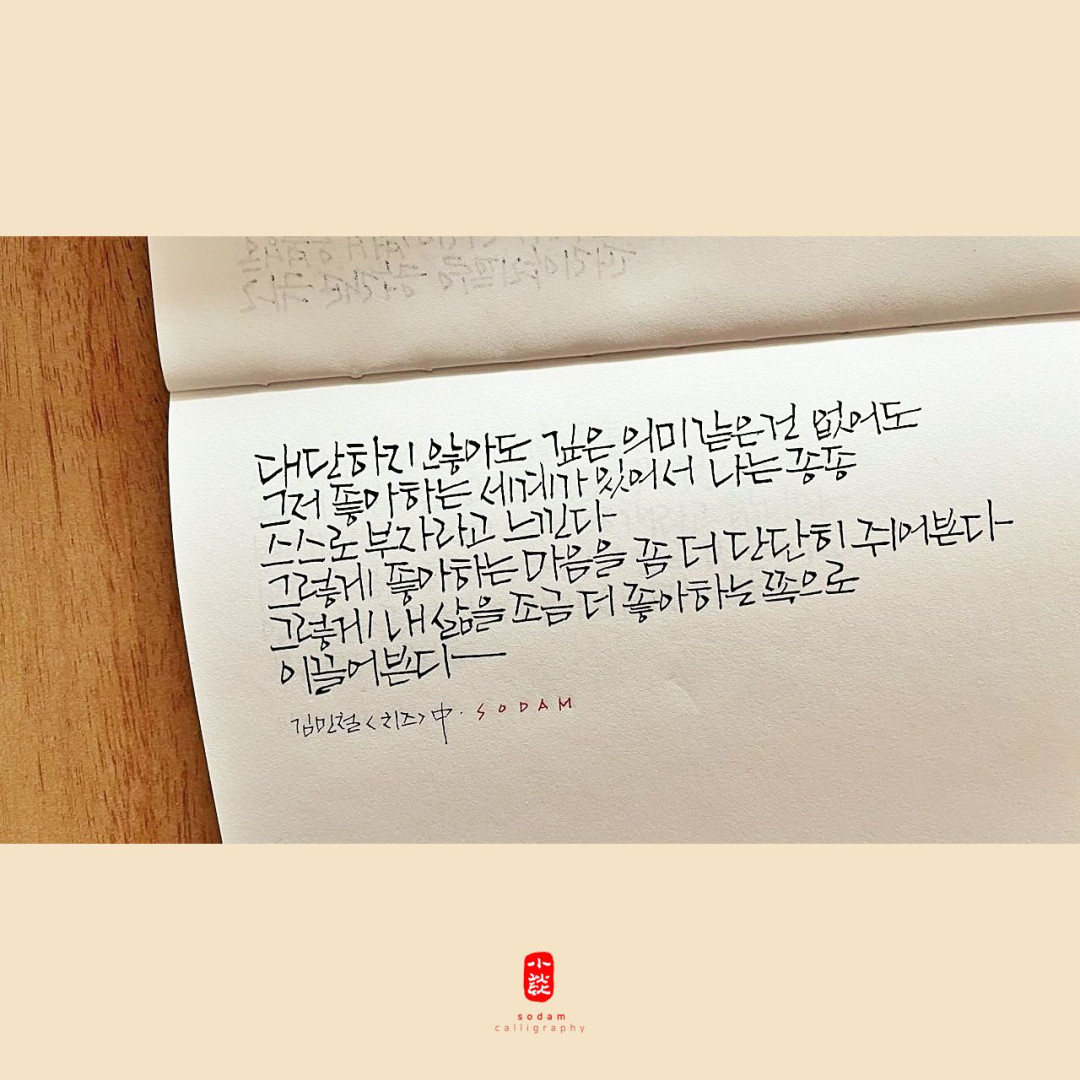 대단하지 않아도 깊은 의미같은건 없어도
그저 좋아하는 세계가 있어서 나는 종종
스스로 부자라고 느낀다
그렇게 좋아하는 마음을 좀 더 단단히 쥐어본다
그렇게 내 삶을 조금 더 좋아하는 쪽으로
이끌어본다
김민철 <치즈> 中. SODAM
小談
sodam
calligraphy